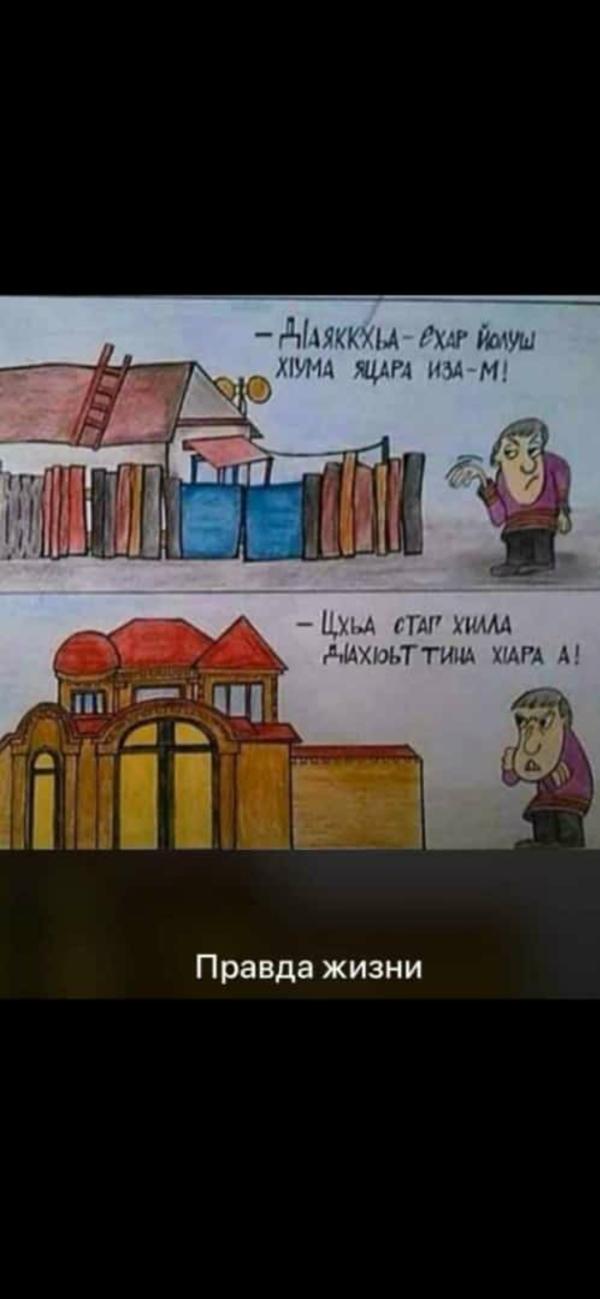 - ДIАЯККХЬА-ЕХАР ЙОЛУШ
ХIУМА ЯЦАРА ИЗА-М!
- ЦХЬА СТАГ ХИЛЛА
ДIАХIОЬТТИНА ХIАРА А!
Правда жизни